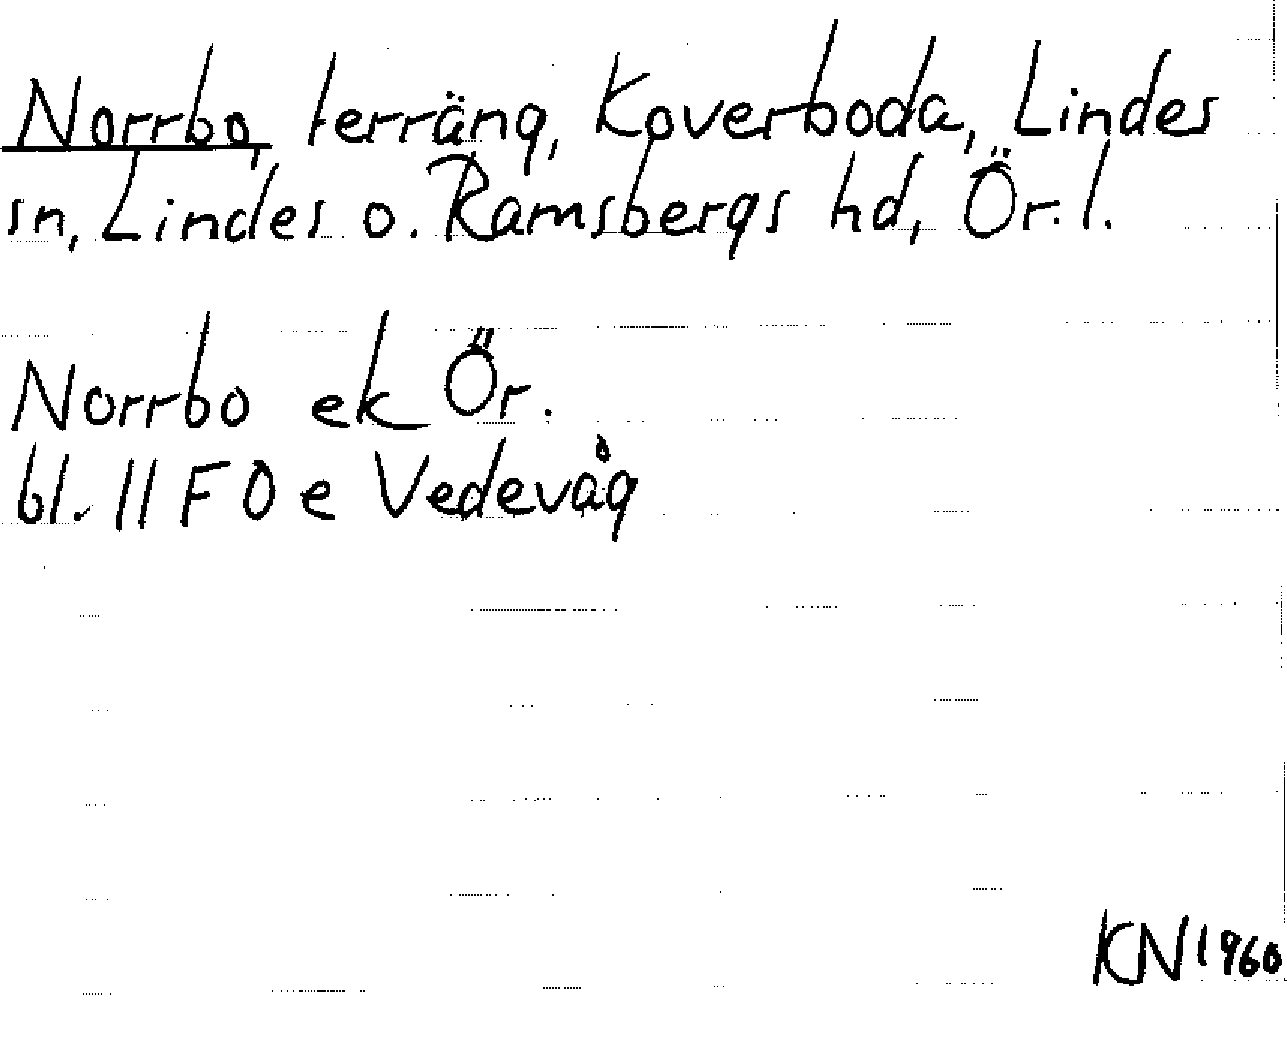 Norrbo, terräng, Koverboda, Lindes
sn, Lindes o. Ramsbergs hd, Ör. l.
Norrbo ek Ör.
bl. 11 F 0 e Vedevåg
KN 1960